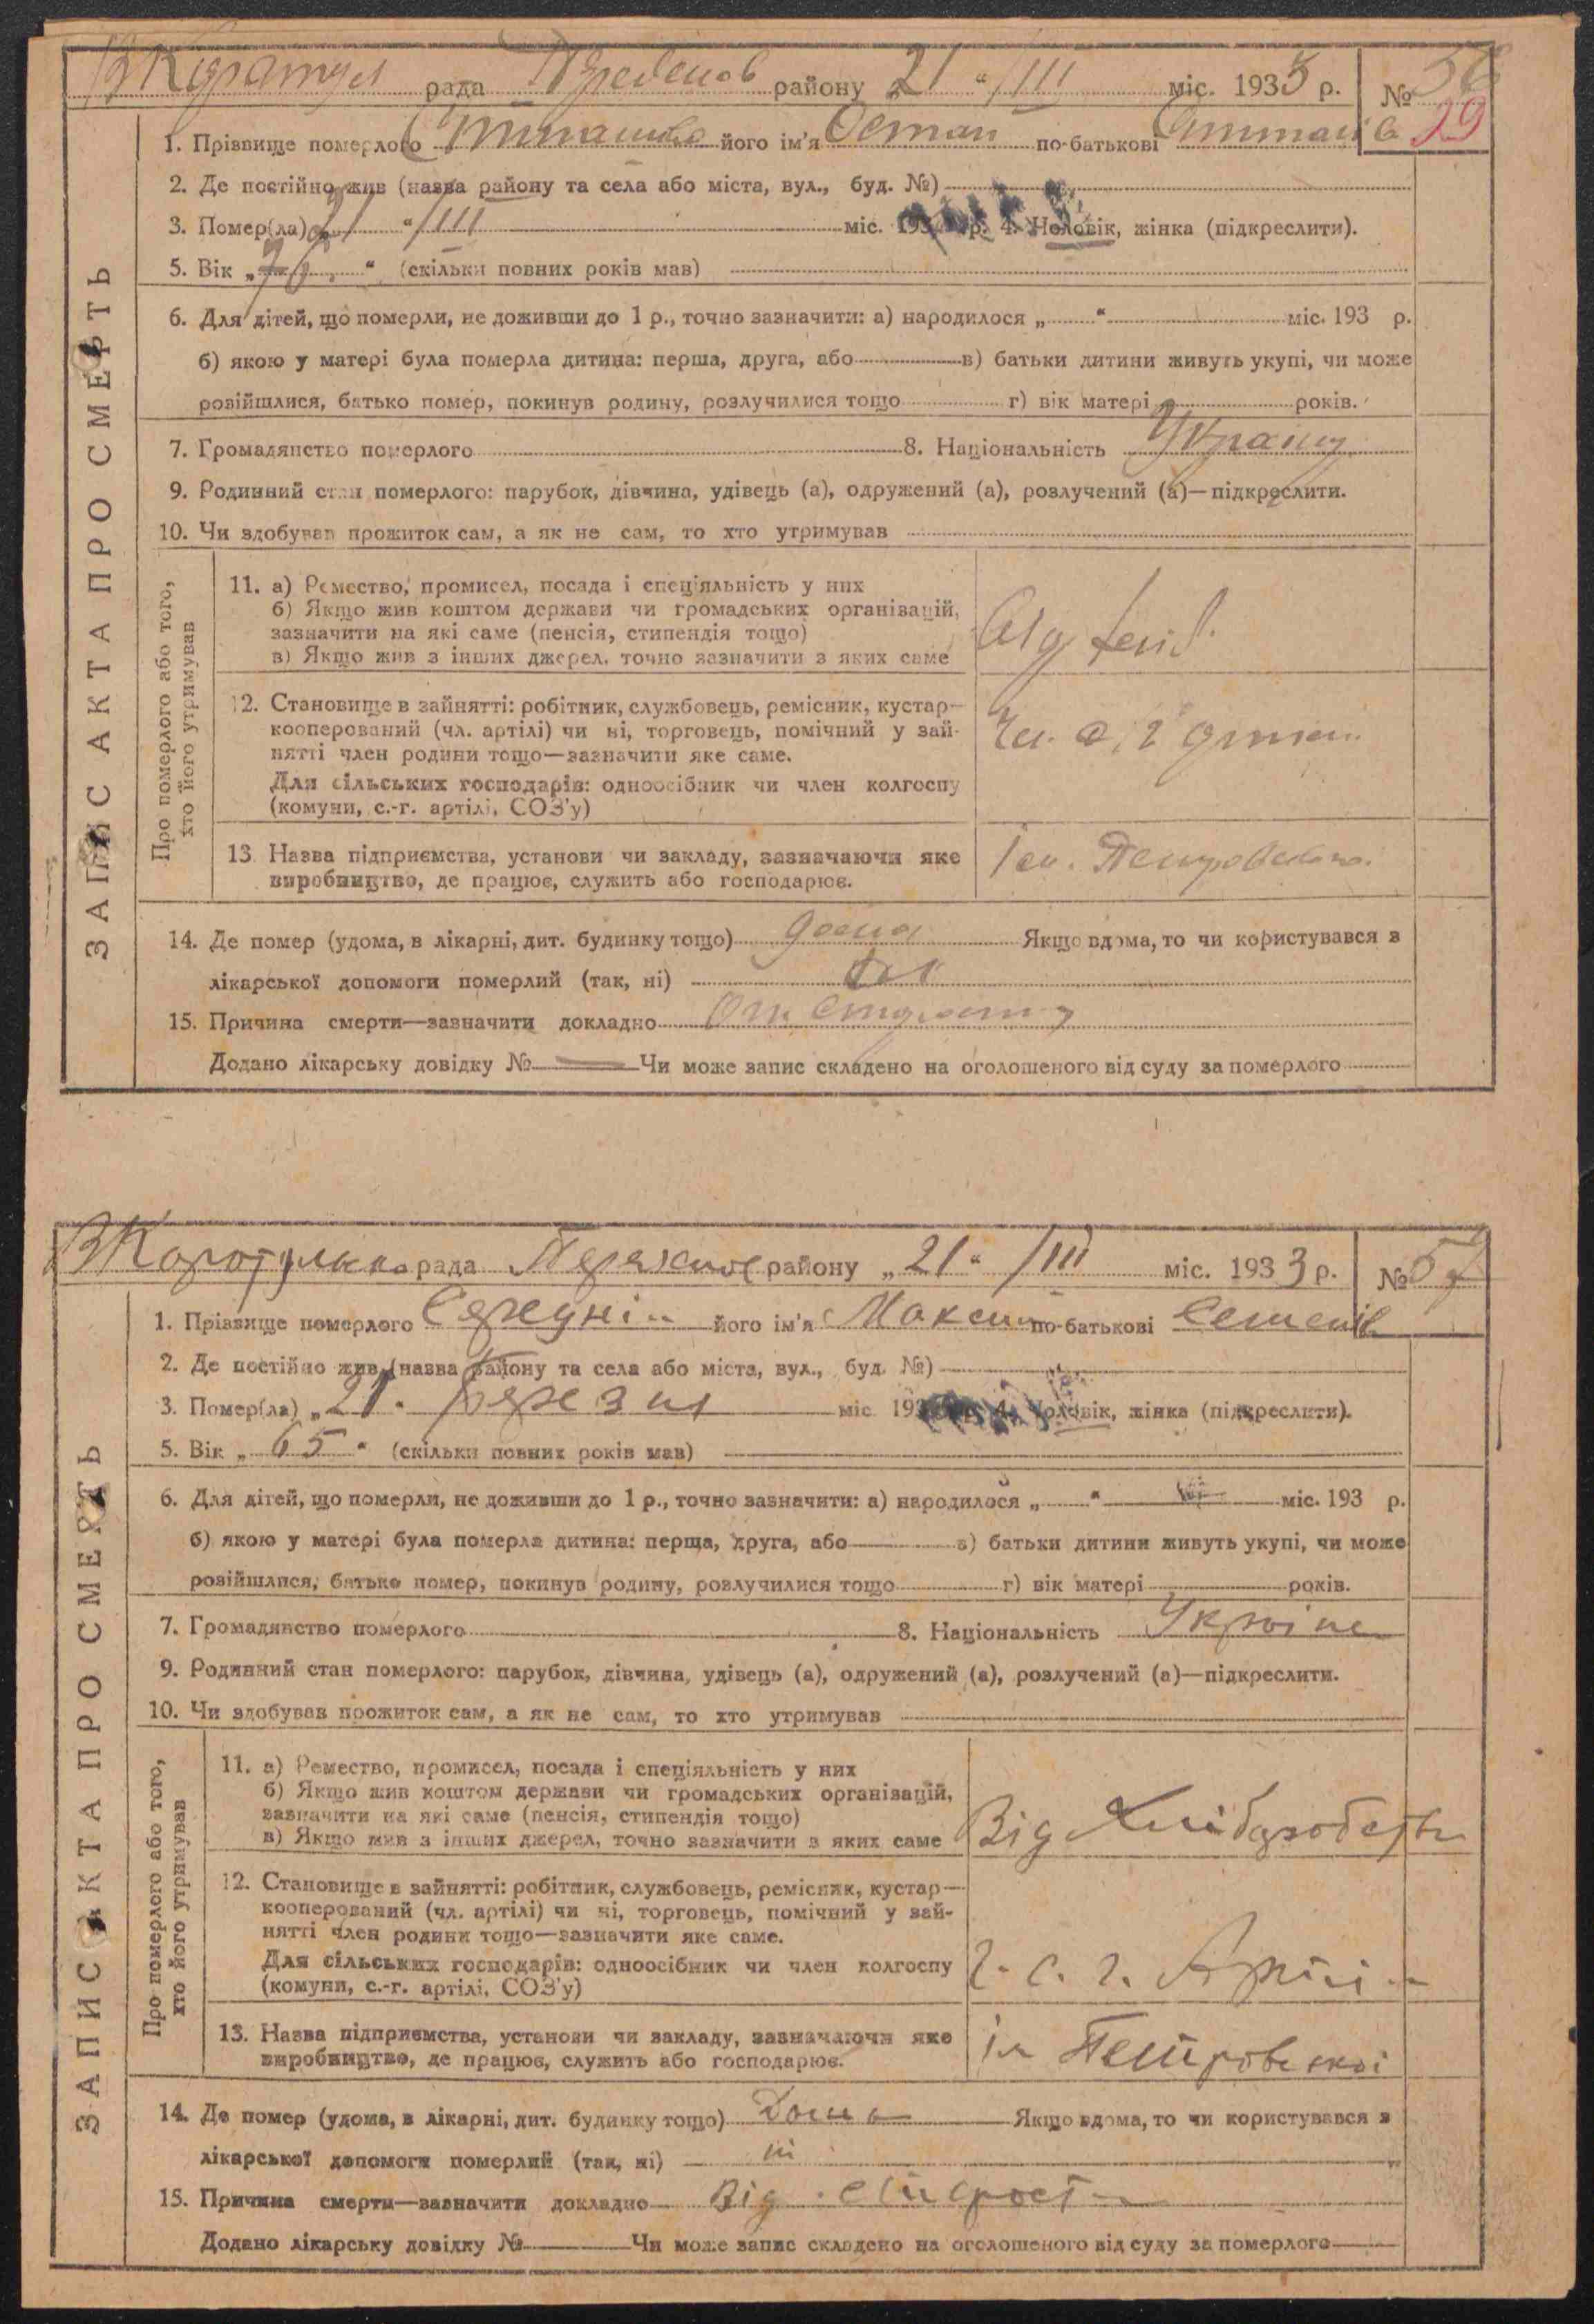 рада району „21“ /III міс. 1933 р. № 56
29
1. Прізвище померлого його ім'я Остап по-батькові
2. Де постійно жив (назва району та села або міста, вул., буд. №)
3. Помер(ла) „21“ /III міс. 193 р. 4. Чоловік, жінка (підкреслити).
5. Вік „ “ (скільки повних років мав)
6. Для дітей, що померли, не доживши до 1 р., точно зазначити: а) народилося „ “ міс. 193 р.
б) якою у матері була померла дитина: перша, друга, або в) батьки дитини живуть укупі, чи може
розійшлися, батько помер, покинув родину, розлучилися тощо г) вік матері років.
7. Громадянство померлого 8. Національність
9. Родинний стан померлого: парубок, дівчина, удівець (а), одружений (а), розлучений (а)—підкреслити.
10. Чи здобував прожиток сам, а як не сам, то хто утримував
ЗАПИС АКТА ПРО СМЕРТЬ
Про померлого або того,
хто його утримував
11. а) Ремество, промисел, посада і спеціяльність у них
б) Якщо жив коштом держави чи громадських організацій,
зазначити на які саме (пенсія, стипендія тощо)
в) Якщо жив з інших джерел, точно зазначити з яких саме
12. Становище в зайнятті: робітник, службовець, ремісник, кустар—
кооперований (чл. артілі) чи ні, торговець, помічний у зай-
нятті член родини тощо—зазначити яке саме.
Для сільських господарів: одноосібник чи член колгоспу
(комуни, с.-г. артілі, СОЗ'у)
13. Назва підприємства, установи чи закладу, зазначаючи яке
виробництво, де працює, служить або господарює.
14. Де помер (удома, в лікарні, дит. будинку тощо) дома Якщо вдома, то чи користувався з
лікарської допомоги померлий (так, ні)
15. Причина смерти—зазначити докладно
Додано лікарську довідку № — Чи може запис складено на оголошеного від суду за померлого
рада району „21“ /III міс. 1933 р. № 57
1. Прізвище померлого Середній його ім'я Максим по-батькові Семенів
2. Де постійно жив (назва району та села або міста, вул., буд. №)
3. Помер(ла) „21“ березня міс. 193 4. Чоловік, жінка (підкреслити).
5. Вік „65“ (скільки повних років мав)
6. Для дітей, що померли, не доживши до 1 р., точно зазначити: а) народилося „ “ міс. 193 р.
б) якою у матері була померла дитина: перша, друга, або в) батьки дитини живуть укупі, чи може
розійшлися, батько помер, покинув родину, розлучилися тощо г) вік матері років.
7. Громадянство померлого 8. Національність Україне
9. Родинний стан померлого: парубок, дівчина, удівець (а), одружений (а), розлучений (а)—підкреслити.
10. Чи здобував прожиток сам, а як не сам, то хто утримував
ЗАПИС АКТА ПРО СМЕРТЬ
Про померлого або того,
хто його утримував
11. а) Ремество, промисел, посада і спеціяльність у них
б) Якщо жив коштом держави чи громадських організацій,
зазначити на які саме (пенсія, стипендія тощо)
в) Якщо жив з інших джерел, точно зазначити з яких саме
Від
12. Становище в зайнятті: робітник, службовець, ремісник, кустар—
кооперований (чл. артілі) чи ні, торговець, помічний у зай-
нятті член родини тощо—зазначити яке саме.
Для сільських господарів: одноосібник чи член колгоспу
(комуни, с.-г. артілі, СОЗ'у)
с. г. Артілі
13. Назва підприємства, установи чи закладу, зазначаючи яке
виробництво, де працює, служить або господарює.
ім Петровскоі
14. Де помер (удома, в лікарні, дит. будинку тощо) Дома Якщо вдома, то чи користувався з
лікарської допомоги померлий (так, ні) ні
15. Причина смерти—зазначити докладно Від
Додано лікарську довідку № Чи може запис складено на оголошеного від суду за померлого